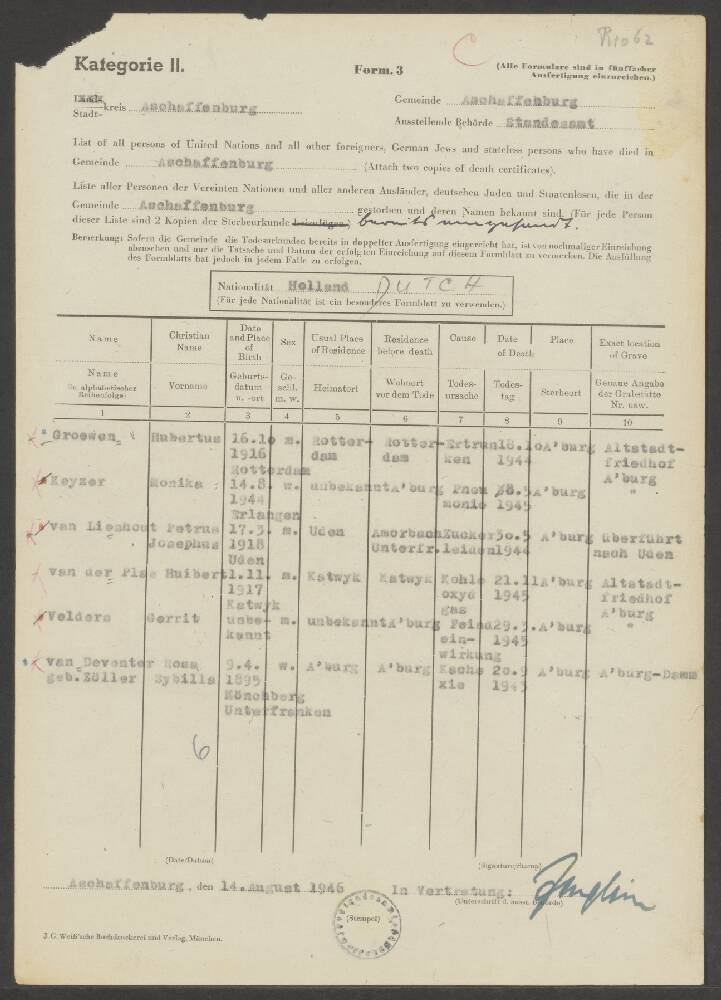 R1062
C
Kategorie II.
Form. 3
(Alle Formulare sind in fünffacher
Ausfertigung einzureichen.)
Land-
Stadt-kreis Aschaffenburg
Gemeinde Aschaffenburg
Ausstellende Behörde Standesamt
List of all persons of United Nations and all other foreigners, German Jews and stateless persons who have died in
Gemeinde Aschaffenburg (Attach two copies of death certificates).
Liste aller Personen der Vereinten Nationen und aller anderen Ausländer, deutschen Juden und Staatenlosen, die in der
Gemeinde Aschaffenburg gestorben und deren Namen bekannt sind. (Für jede Person
dieser Liste sind 2 Kopien der Sterbeurkunde beizufügen.) bereits eingesandt.
Bemerkung: Sofern die Gemeinde die Todesurkunden bereits in doppelter Ausfertigung eingereicht hat, ist von nochmaliger Einreichung
abzusehen und nur die Tatsache und Datum der erfolgten Einreichung auf diesem Formblatt zu vermerken. Die Ausfüllung
des Formblatts hat jedoch in jedem Falle zu erfolgen.
Nationalität Holland DUTCH
(Für jede Nationalität ist ein besonderes Formblatt zu verwenden.)
Name Christian Name Date and Place of Birth Sex Usual Place of Residence Residence before death Cause Date Place Exact location of Grave
of Death
Name (in alphabetischer Reihenfolge) Vorname Geburts-datum u. -ort Ge-schl. m. w. Heimatort Wohnort vor dem Tode Todes-ursache Todes-tag Sterbeort Genaue Angabe der Grabstätte Nr. usw.
1 2 3 4 5 6 7 8 9 10
Groewen, Hubertus 16.10 m. Rotter- Rotter- Ertrun 18.10 A'burg Altstadt-
1916 dam dam ken 1944 friedhof
Rotterdam A'burg
Keyzer Monika 14.8. w. unbekannt A'burg Pneu 38.5 A'burg "
1944 monie 1945
Erlangen
van Lieshout Petrus 17.3. m. Uden Amorbach Zucker 30.5 A'burg überführt
Josephus 1918 Unterfr. leiden 1944 nach Uden
Uden
van der Plas Huibert 1.11. m. Katwyk Katwyk Kohle 21.11 A'burg Altstadt-
1917 oxyd 1945 friedhof
Katwyk gas A'burg
Velders Gerrit unbe- m. unbekannt A'burg Feind 29.3. A'burg "
kannt ein- 1945
wirkung
van Deventer Rosa 9.4. w. A'burg A'burg Kache 20.9 A'burg A'burg-Damm
geb. Zöller Sybilla 1895 xie 1943
Mönchberg
Unterfranken
6
(Date/Datum)
(Signature/Stamp)
Aschaffenburg, den 14. August 1946 In Vertretung:
(Stempel)
J. G. Weiß'sche Buchdruckerei und Verlag, München.